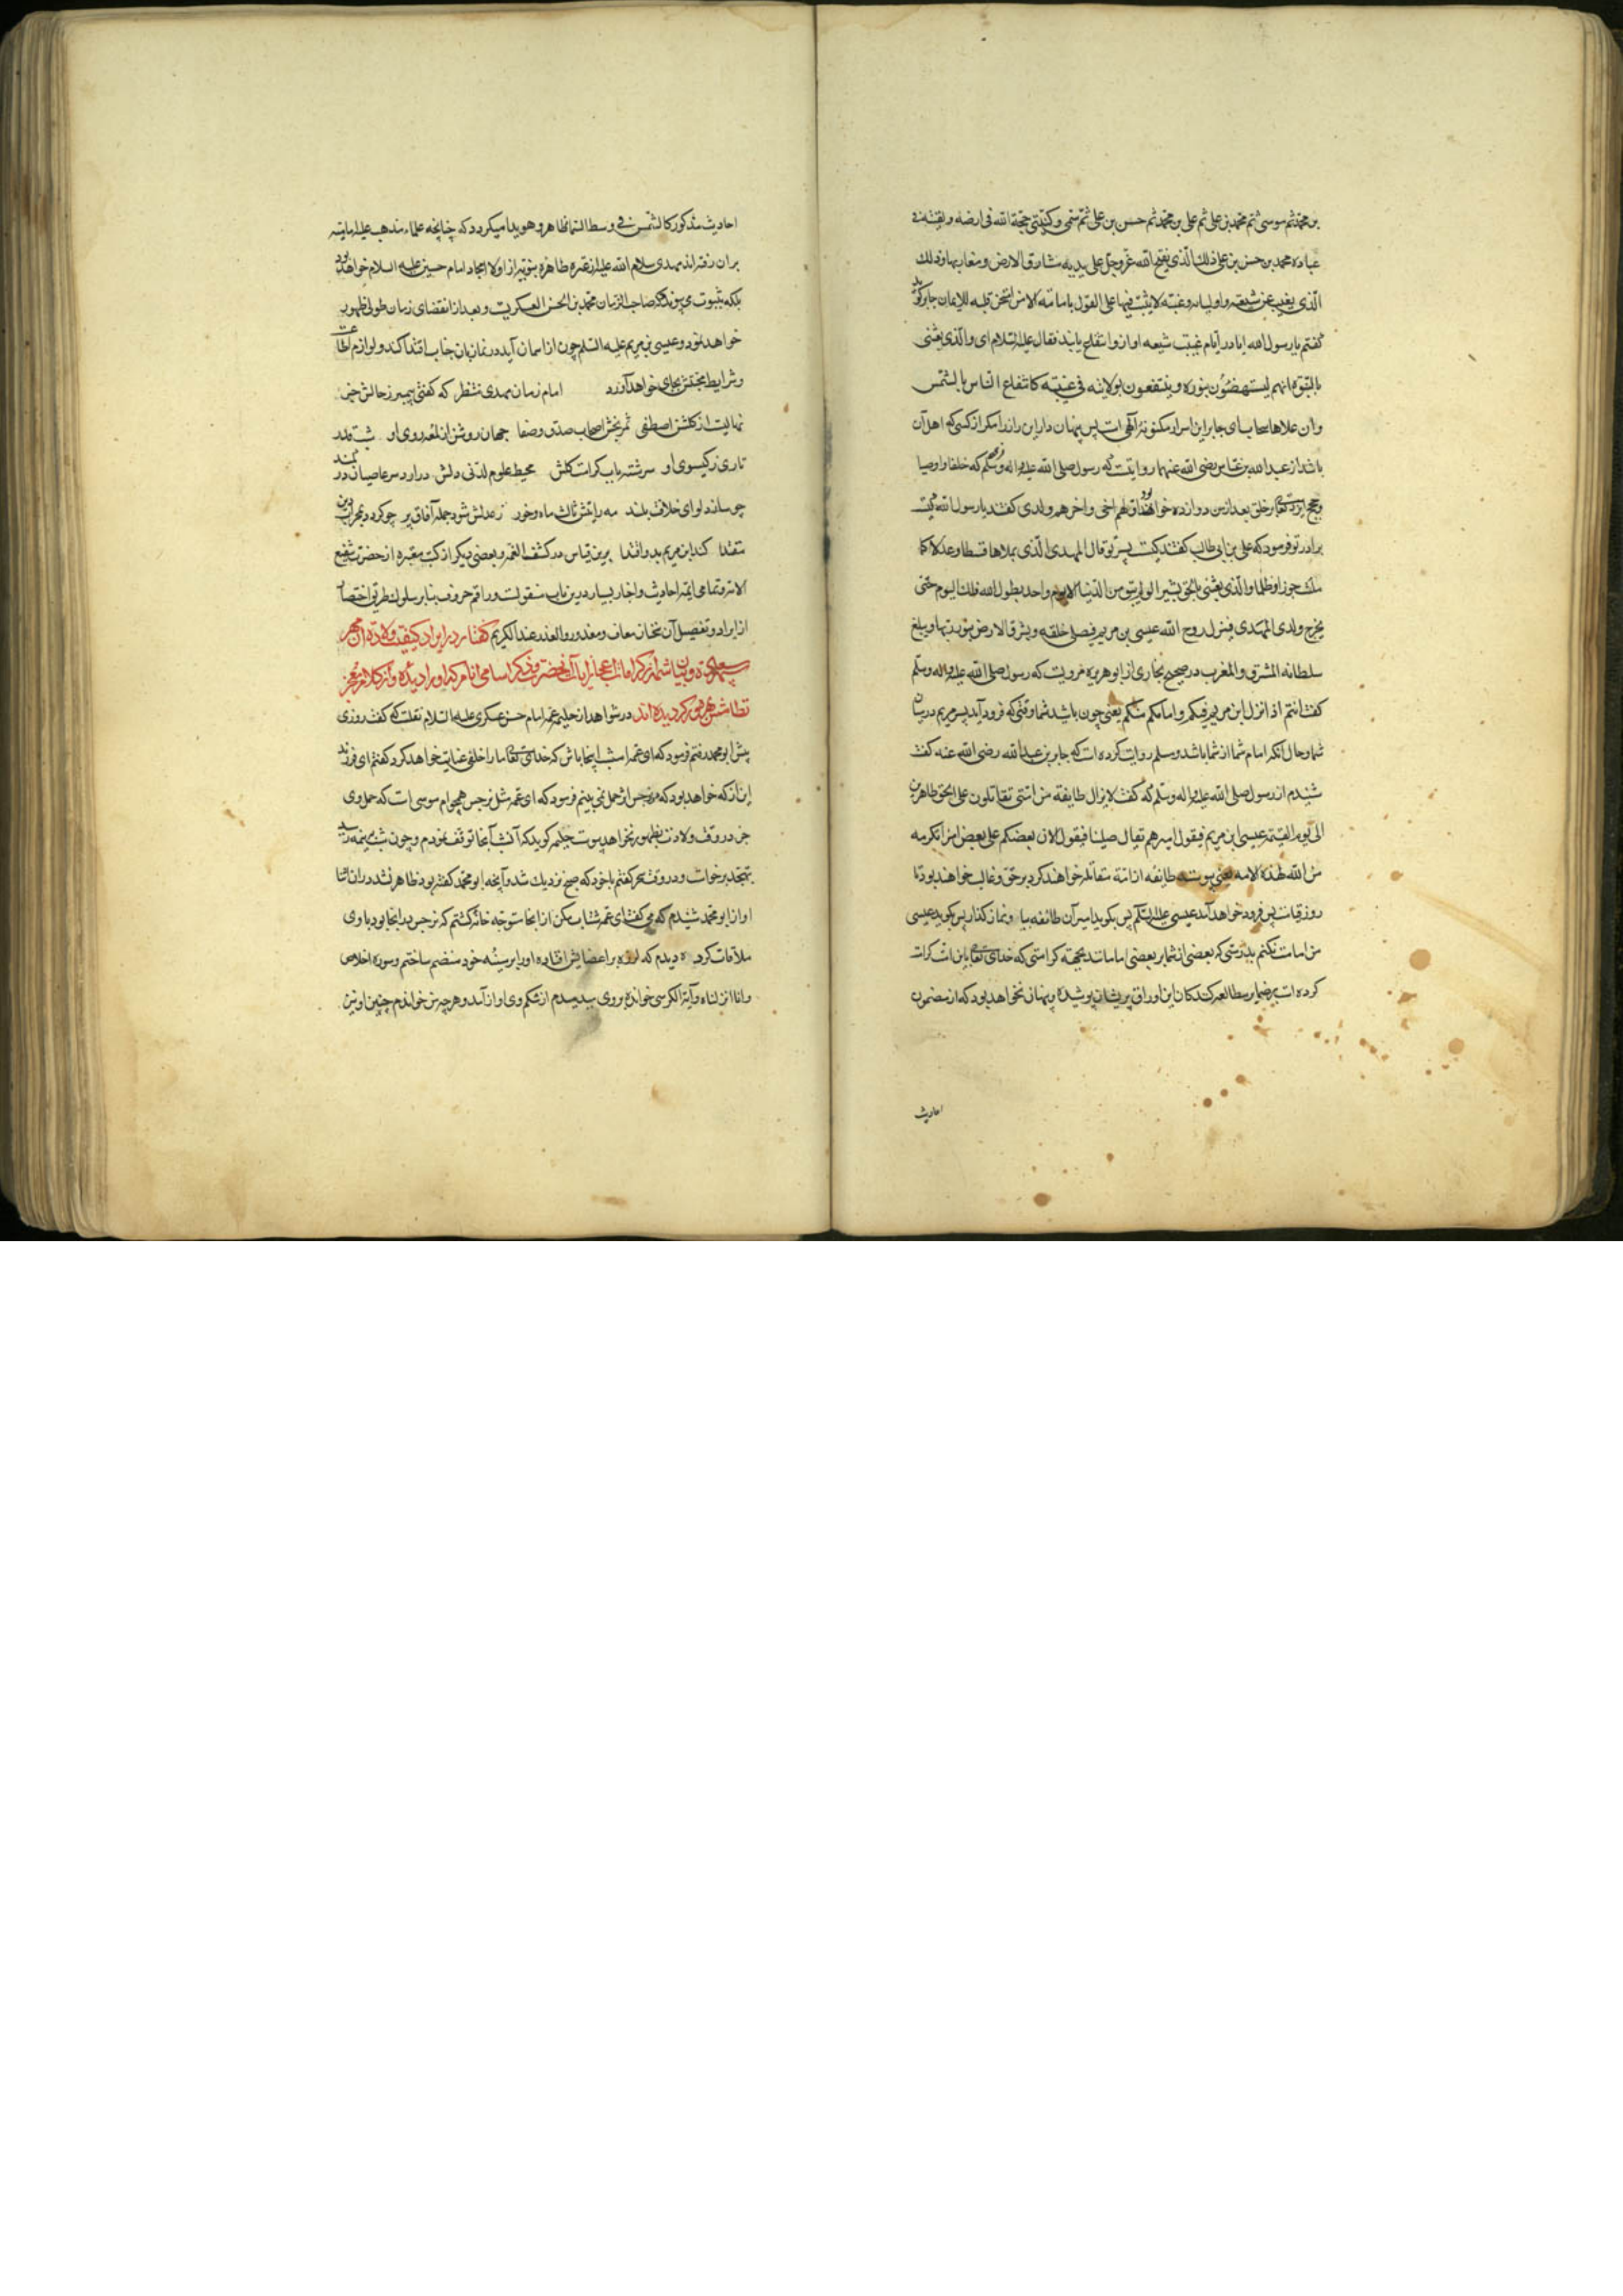 بن محمد ثم موسی ثم محمد بن علی ثم علی بن محمد ثم حسن بن علی ثم سمی و کنیتی حجة الله فی ارضه و بقیته فی
عباده محمد بن حسن بن علی ذلک الذی یفتح الله عز و جل علی یدیه مشارق الارض و مغاربها و ذلک
الذی یغیب عن شیعته و اولیائه غیبة لا یثبت فیها علی القول بامامته الا من امتحن قلبه للایمان جابر کوید
کفتم یا رسول الله ایا در ایام غیبت شیعه او ازو انتفاع یابند فقال علیه السلام ای والذی بعثنی
بالنبوة انهم لیستضیئون بنوره و ینتفعون بولایته فی غیبته کانتفاع الناس بالشمس
وان علاها سحاب ای جابر این اسرار مکنونه الهی است پس پنهان دار این راز را مکر از کسی که اهل آن
باشد از عبد الله بن عباس رضی الله عنهما روایتست که رسول صلی الله علیه و اله وسلم فرمود که خلفا و اوصیا
و حجج ایزد تعالی بر خلق بعد از من دوازده خواهند بود اولهم اخی و اخرهم ولدی کفتند یا رسول الله کیست
برادر تو فرمود که علی بن ابی طالب کفتند کیست پسر تو قال المهدی الذی یملاها قسطا و عدلا کما
ملئت جورا و ظلما والذی بعثنی بالحق بشیرا لو لم یبق من الدنیا الا یوم واحد یطول الله ذلک الیوم حتی
یخرج ولدی المهدی فینزل روح الله عیسی بن مریم فیصلی خلفه و یشرق الارض بنور ربها و یبلغ
سلطانه المشرق والمغرب در صحیح بخاری از ابو هریره مرویست که رسول صلی الله علیه و اله وسلم
کفت انتم اذا نزل ابن مریم فیکم و امامکم منکم یعنی چون باشید شما وقتی که فرود آید پسر مریم در میان
شما و حال آنکه امام شما از شما باشد و مسلم روایت کرده است که جابر بن عبد الله رضی الله عنه کفت
شنیدم از رسول صلی الله علیه و اله وسلم که کفت لا یزال طایفة من امتی تقاتلون علی الحق ظاهرین
الی یوم القیمة عیسی ابن مریم فیقول امیرهم تعال صل لنا فیقول لا ان بعضکم علی بعض امرا تکرمه
من الله لهذه الامه یعنی پیوسته طایفه از امة مقاتله خواهند کرد بر حق و غالب خواهند بود تا
روز قیامت پس فرود خواهد آمد عیسی علیه السلم پس بکوید امیر آن طائفه بیا و نماز کذار پس بکوید عیسی
من امامت نکنم بدرستی که بعضی از شما بر بعضی امامانند بجهة کرامتی که خدای تعالی باین امت کرامت
کرده است بر ضمایر مطالعه کنندکان این اوراق پریشان پوشیده و پنهان نخواهد بود که از مضمون
احادیث
احادیث مذکور کالشمس فی وسط السما ظاهر و هویدا میکردد که چنانچه علماء مذهب علیه امامیه
بران رفته اند مهدی سلام الله علیه از عترة طاهره نبویه از اولاد امجاد امام حسین علیه السلام خواهد بود
بلکه بثبوت می پیوندد که صاحب الزمان محمد بن الحسن العسکریست و بعد از انقضای زمان طولی ظهور
خواهد نمود و عیسی بن مریم علیه السلم چون از اسمان آید در نماز بان جناب اقتدا کند و لوازم اطاعت
و شرایط بجای خواهد آورد امام زمان مهدی منتظر که کفتی پیمبر ز حالش خبر
نهالیست از کلشن اصطفی ثمر بخش اصحاب صدق و صفا جهان روشن از لمعه روی او شب قدر
تاری ز کیسوی او سرشته باب کرامت کلش محیط علوم لدنی دلش در ارد سر عاصیان در کمند
چو سازد لوای خلافت بلند مه رایتش ثالث ماه و خور ز عدلش شود جمله آفاق پر چو کردد بمحراب دین
مقتدا کند ابن مریم بدو اقتدا برین قیاس در کشف الغمه و بعضی دیکر از کتب معتبره از حضرت شفیع
الامه و تمامی ایمه احادیث و اخبار بسیار درین باب منقولست و راقم حروف بنابر سلوک طریق اختصار
از ایراد و تفصیل آن سخنان معاف و معذور و العذر عند الکریم کفتار در ایراد کیفیت ولادت آن مهر
سپهر و بیان شمه از کرامات و عجائب آن حضرت و ذکر اسامی انام که او را دیده و از کلام معجز
نظامش بهره ور کردیده اند در شواهد از حلیمه عمه امام حسن عسکری علیه السلام نقلست که کفت روزی
پیش ابو محمد رفتم فرمود که ای عمه امشب اینجا باش که خدای تعالی ما را خلفی عنایت خواهد کرد کفتم ای فرزند
این از که خواهد بود که در نرجس اثر حمل نمی بینم فرمود که ای عمه مثل نرجس همچو ام موسی است که حمل وی
جز در وقت ولادت بظهور نخواهد پیوست حلیمه کوید که آنشب آنجا توقف نمودم و چون شب بنیمه رسید
بتهجد برخاستم و در وقت سحر کفتم با خود که صبح نزدیک شد و آنچه ابو محمد کفته بود ظاهر نشد در ان اثنا
اواز ابو محمد شنیدم که می کفت ای عمه شتاب مکن از انجا متوجه خانه کشتم که نرجس بدانجا بود با وی
ملاقات کرده دیدم که لرزه بر اعضایش افتاده او را بر سینه خود منضم ساختم و سوره اخلاص
و انا انزلناه و آیة الکرسی خوانده بر وی میدمیدم از شکم وی اواز آمد و هر چه من خواندم چنین او نیز